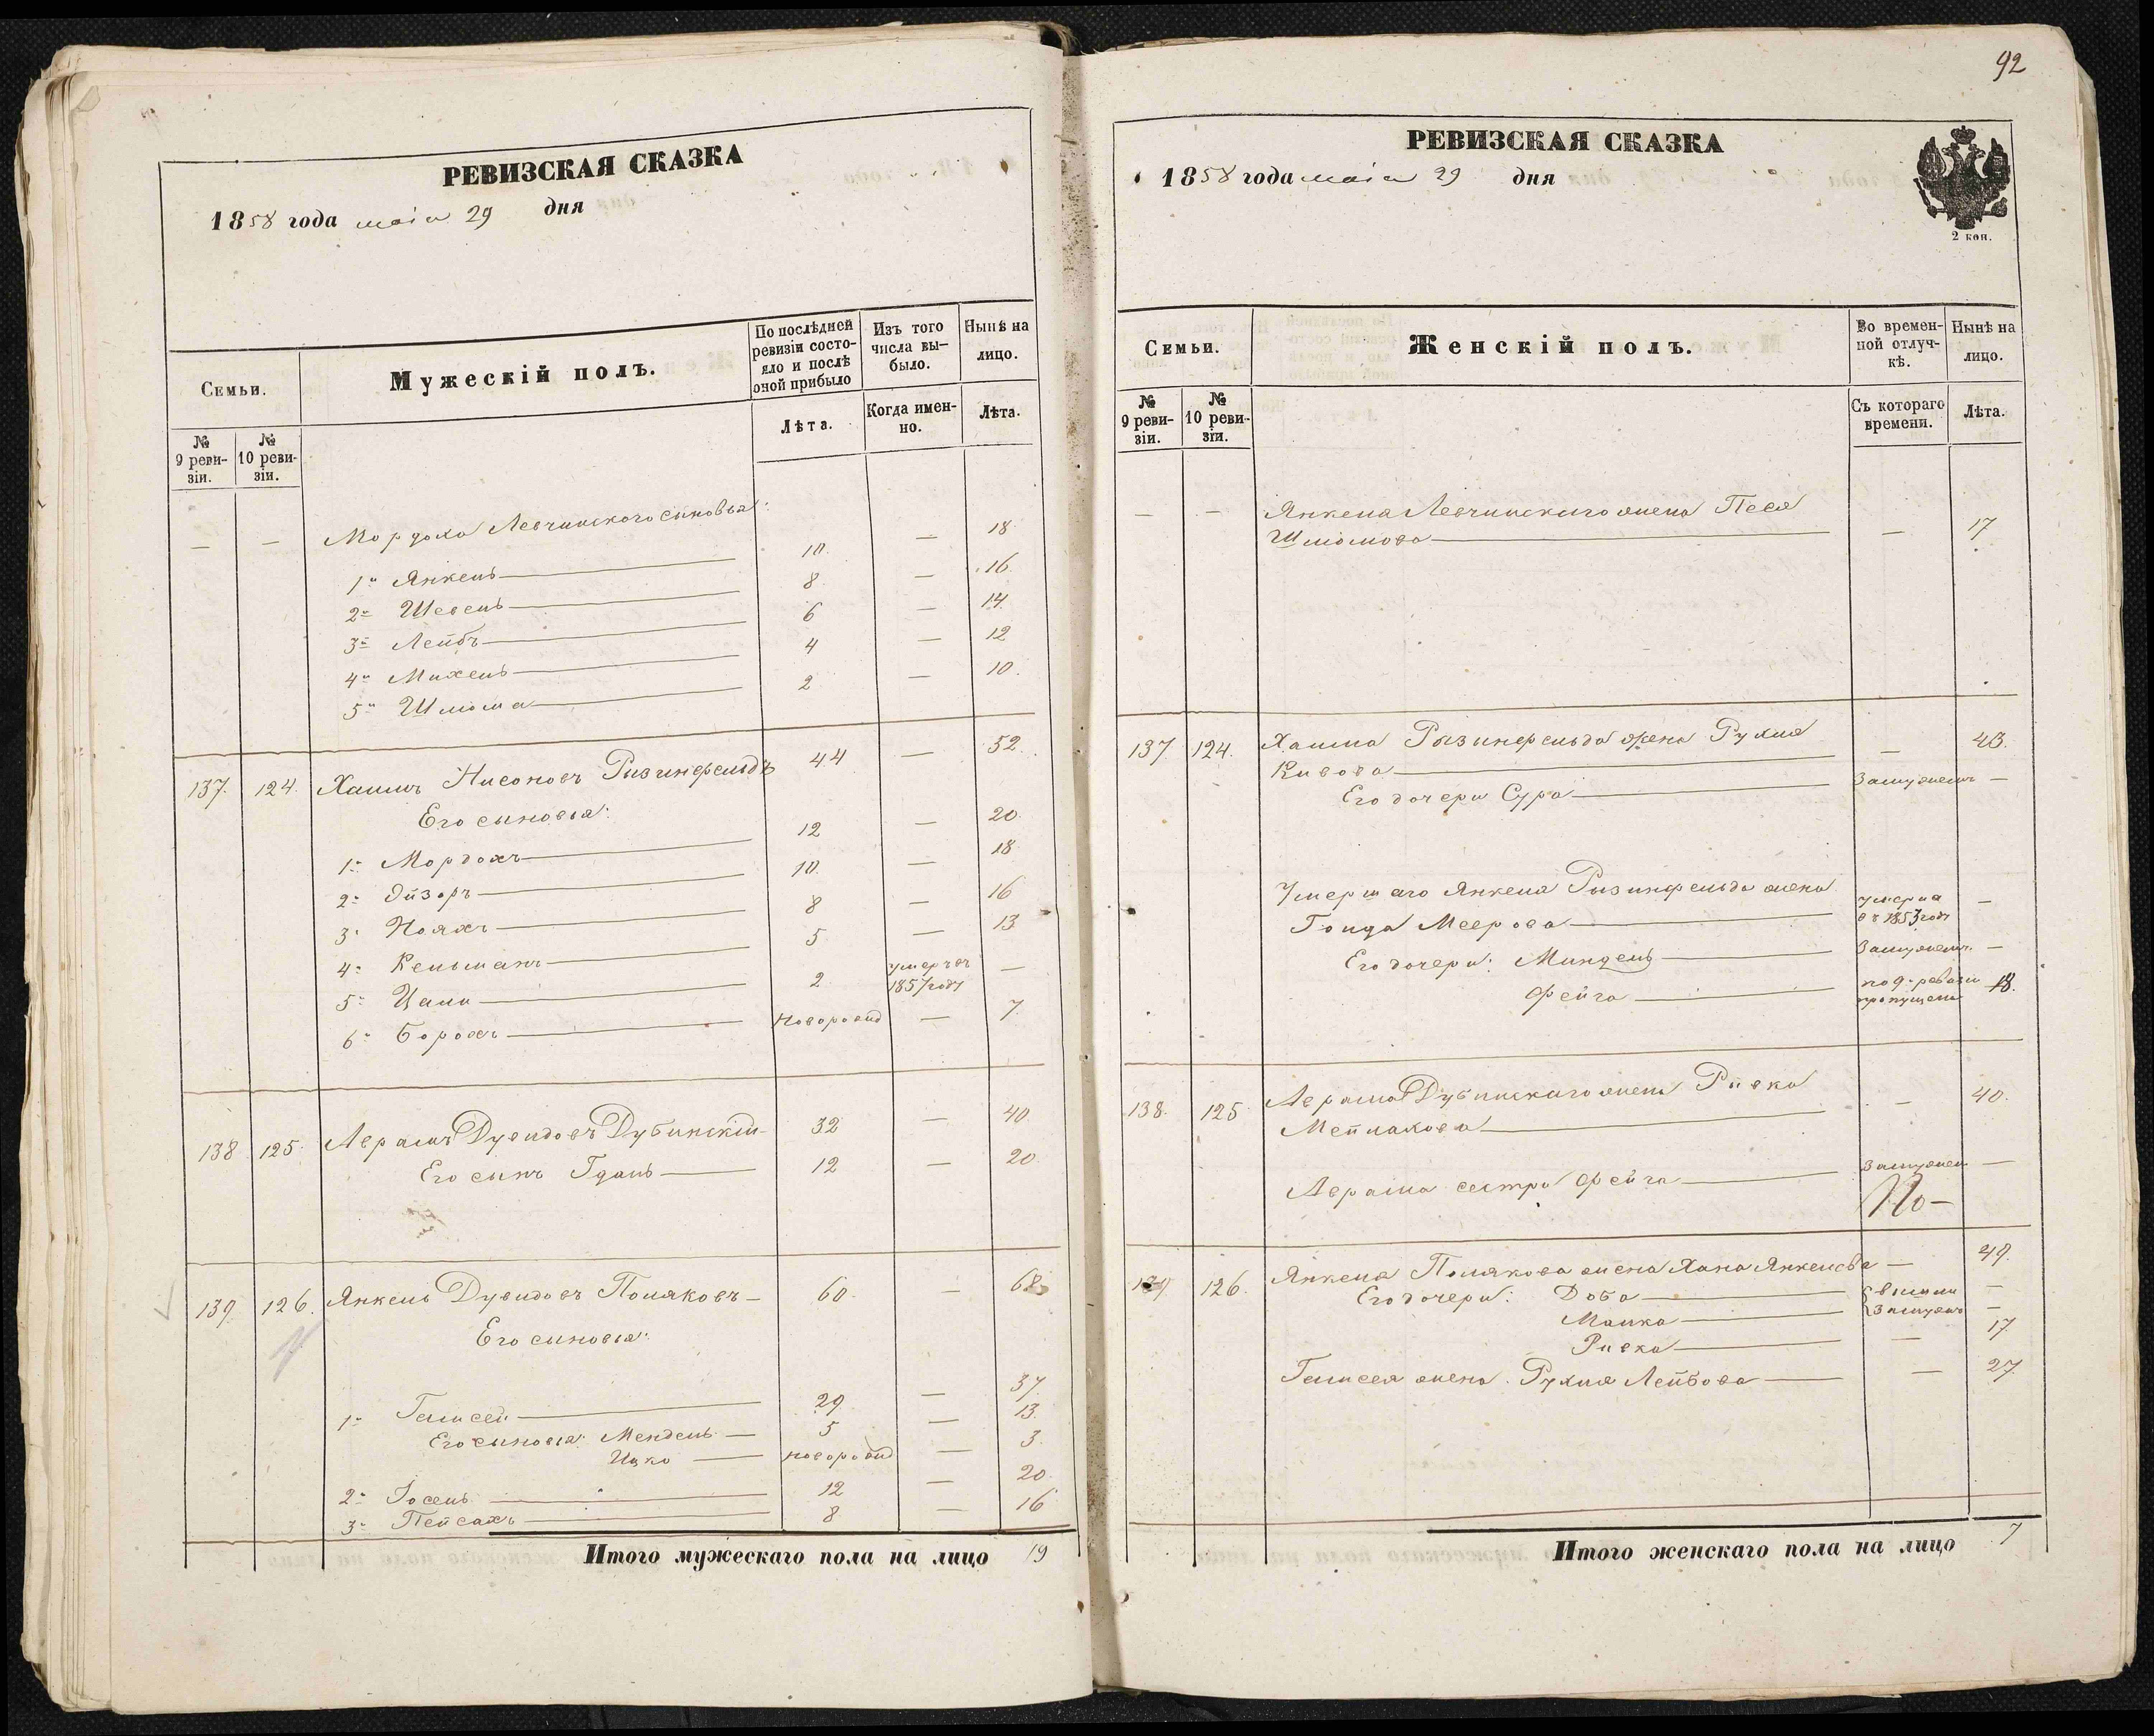 РЕВИЗСКАЯ СКАЗКА
1858 года маія 29 дня
Семьи.
Мужескій полъ.
По послѣдней ревизіи состояло и послѣ оной прибыло
Изъ того числа вы-было.
Ныпѣ на лицо.
№ 9 реви-зіи.
№ 10 реви-зіи.
Лѣта.
Когда имен-но.
Лѣта.
— — Мордоха Левчинского сыновья:
1й Янкель 10. — 18
2й Шевель 8 — 16
3й Лейбъ 6 — 14
4й Михель 4 — 12
5й Шлиома 2 — 10.
137. 124. Хаимъ Нисоновъ Ризинфельдъ 44 — 52.
Его сыновья:
1й Мордохъ 12 — 20
2й Эйзоръ 10. — 18
3й Нояхъ 8 — 16
4й Кельманъ 5 — 13
5й Цали 2 умеръ въ 1857 году —
6й Борохъ новорожд — 7
138 125. Аврамъ Дувидовъ Дубинскій 32 — 40
Его сынъ Гдаль 12 — 20
139. 126. Янкель Дувидовъ Поляковъ 60 — 68
Его сыновья:
1й Гемсей 29 — 37.
Его сыновья: Мендель 5 — 13.
Ицко новорожд — 3.
2й Іосель 12 — 20
3й Пейсахъ 8 — 16
Итого мужескаго пола на лицо 19
92
РЕВИЗСКАЯ СКАЗКА
1858 года маія 29 дня
2 коп.
Семьи.
Женскій полъ.
Во времен-ной отлуч-кѣ.
Нынѣ на лицо.
№ 9 реви-зіи.
№ 10 реви-зіи.
Съ котораго времени.
Лѣта.
— — Янкеля Левчинскаго жена Песя
Шлиомова — 17
137 124. Хаима Ризинфельда жена Рухля
Кивова — 43.
Его дочери Сура Замужемъ —
Умершаго Янкеля Ризинфельда жена
Гонда Меерова умерла въ 1853 году —
Его дочери: Миндель Замужемъ —
Фейга по 9 ревизіи пропущена 18.
138. 125 Аврама Дубинскаго жена Ривка
Мейлахова — 40.
Аврама сестра Фейга Замужем —
139 126. Янкеля Полякова жена Хана Янкелева — 49.
Его дочери: Доба вышли —
Малка Замужъ —
Ривка — 17
Гемсея жена Рухля Лейбова — 27.
Итого женскаго пола на лицо 7